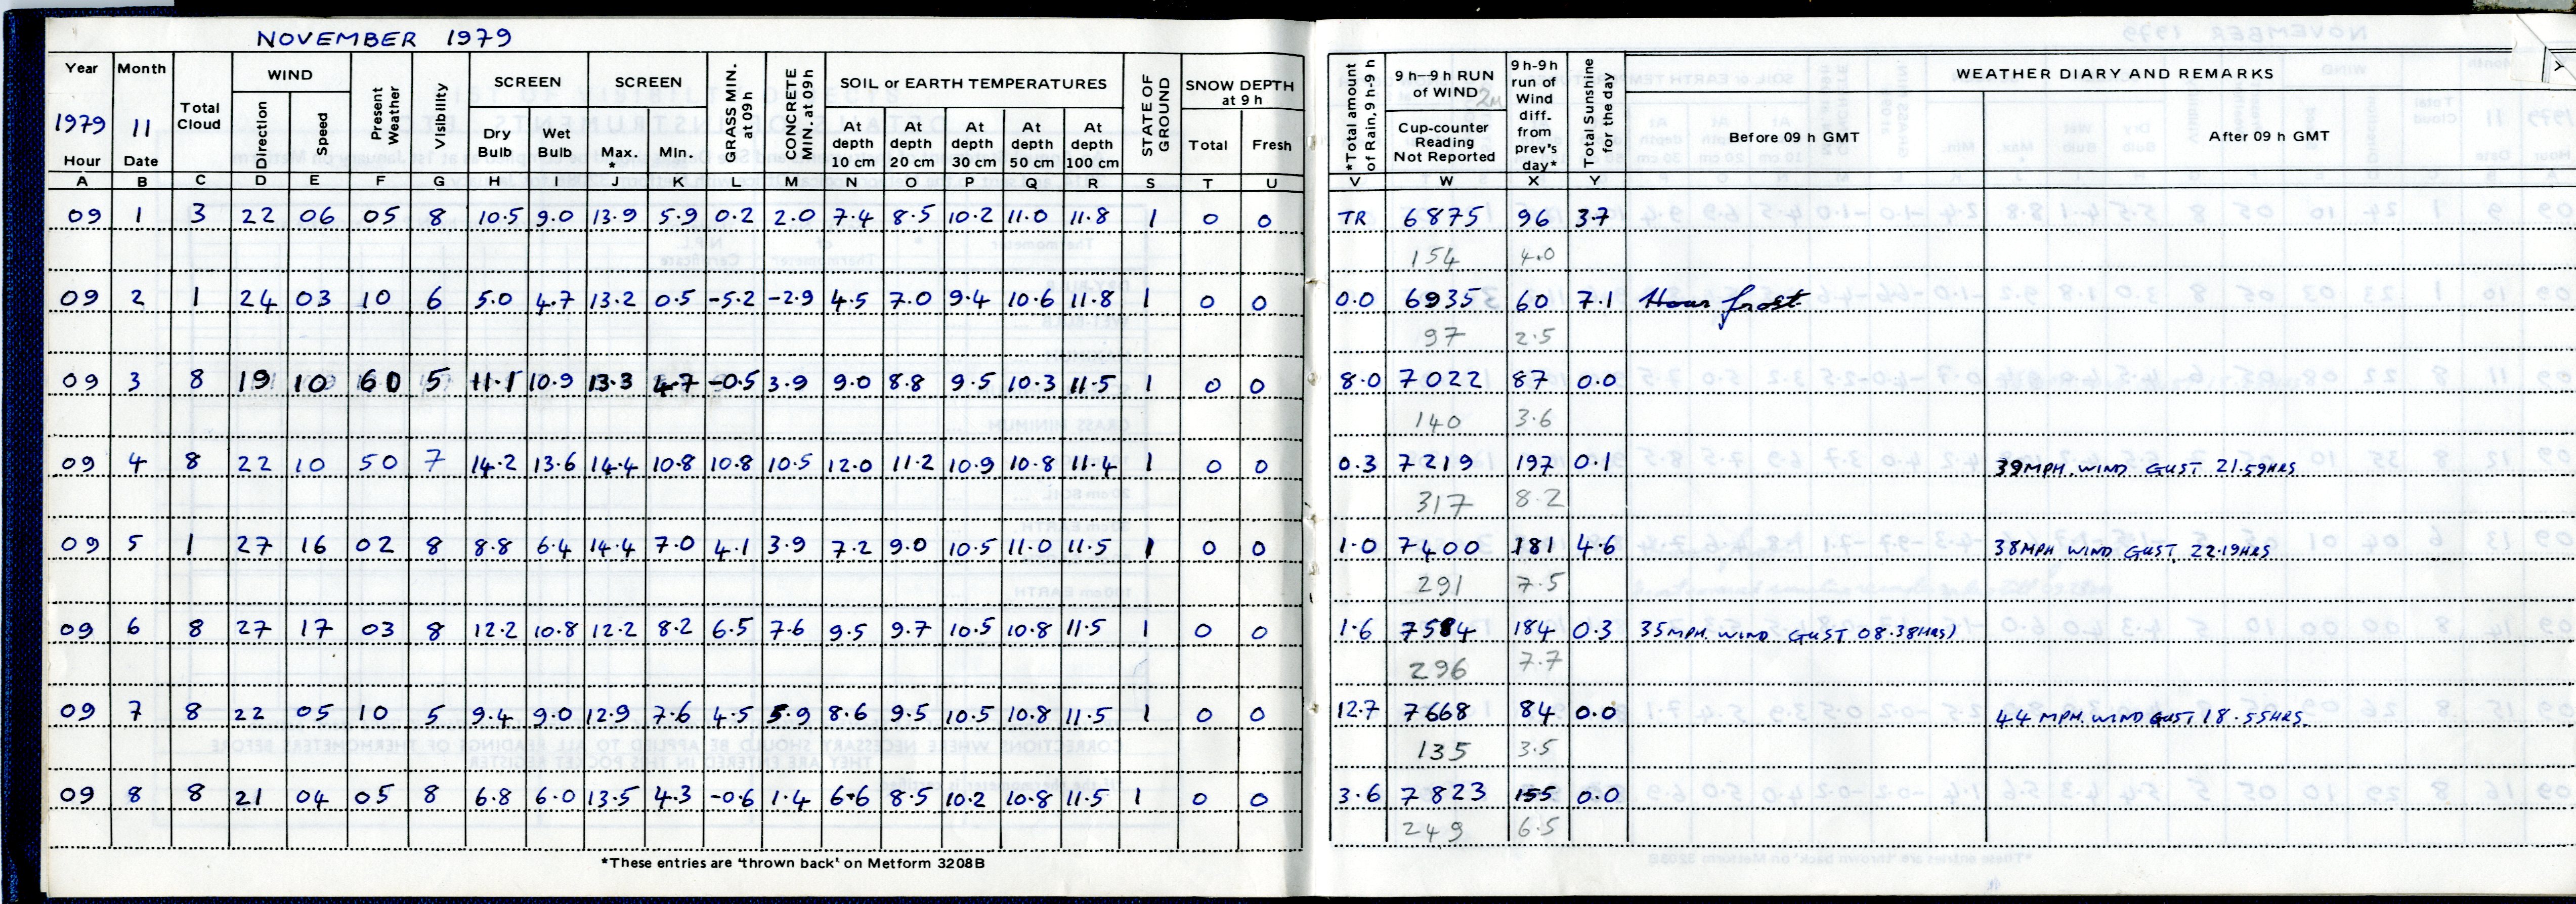 NOVEMBER 1979
Year Month Total Cloud WIND Present Weather Visibility SCREEN SCREEN GRASS MIN. at 09h CONCRETE MIN. at 09h SOIL or EARTH TEMPERATURES STATE OF GROUND SNOW DEPTH at 9 h *Total amount of Rain, 9 h-9 h 9 h—9 h RUN of WIND 2m 9 h-9 h run of Wind diff. from prev's day* Total Sunshine for the day WEATHER DIARY AND REMARKS
1979 11 Direction Speed Dry Bulb Wet Bulb Max. * Min. At depth 10 cm At depth 20 cm At depth 30 cm At depth 50 cm At depth 100 cm Total Fresh Cup-counter Reading Not Reported Before 09 h GMT After 09 h GMT
Hour Date
A B C D E F G H I J K L M N O P Q R S T U V W X Y
09 1 3 22 06 05 8 10.5 9.0 13.9 5.9 0.2 2.0 7.4 8.5 10.2 11.0 11.8 1 0 0 TR 6875 96 3.7
154 4.0
09 2 1 24 03 10 6 5.0 4.7 13.2 0.5 -5.2 -2.9 4.5 7.0 9.4 10.6 11.8 1 0 0 0.0 6935 60 7.1 Hoar frost
97 2.5
09 3 8 19 10 60 5 11.1 10.9 13.3 4.7 -0.5 3.9 9.0 8.8 9.5 10.3 11.5 1 0 0 8.0 7022 87 0.0
140 3.6
09 4 8 22 10 50 7 14.2 13.6 14.4 10.8 10.8 10.5 12.0 11.2 10.9 10.8 11.4 1 0 0 0.3 7219 197 0.1 39MPH. WIND GUST 21.59HRS
317 8.2
09 5 1 27 16 02 8 8.8 6.4 14.4 7.0 4.1 3.9 7.2 9.0 10.5 11.0 11.5 1 0 0 1.0 7400 181 4.6 38MPH WIND GUST 22.19HRS
291 7.5
09 6 8 27 17 03 8 12.2 10.8 12.2 8.2 6.5 7.6 9.5 9.7 10.5 10.8 11.5 1 0 0 1.6 7584 184 0.3 35MPH. WIND GUST 08.38HRS)
296 7.7
09 7 8 22 05 10 5 9.4 9.0 12.9 7.6 4.5 5.9 8.6 9.5 10.5 10.8 11.5 1 0 0 12.7 7668 84 0.0 44 MPH. WIND GUST 18.55HRS.
135 3.5
09 8 8 21 04 05 8 6.8 6.0 13.5 4.3 -0.6 1.4 6.6 8.5 10.2 10.8 11.5 1 0 0 3.6 7823 155 0.0
249 6.5
*These entries are 'thrown back' on Metform 3208B